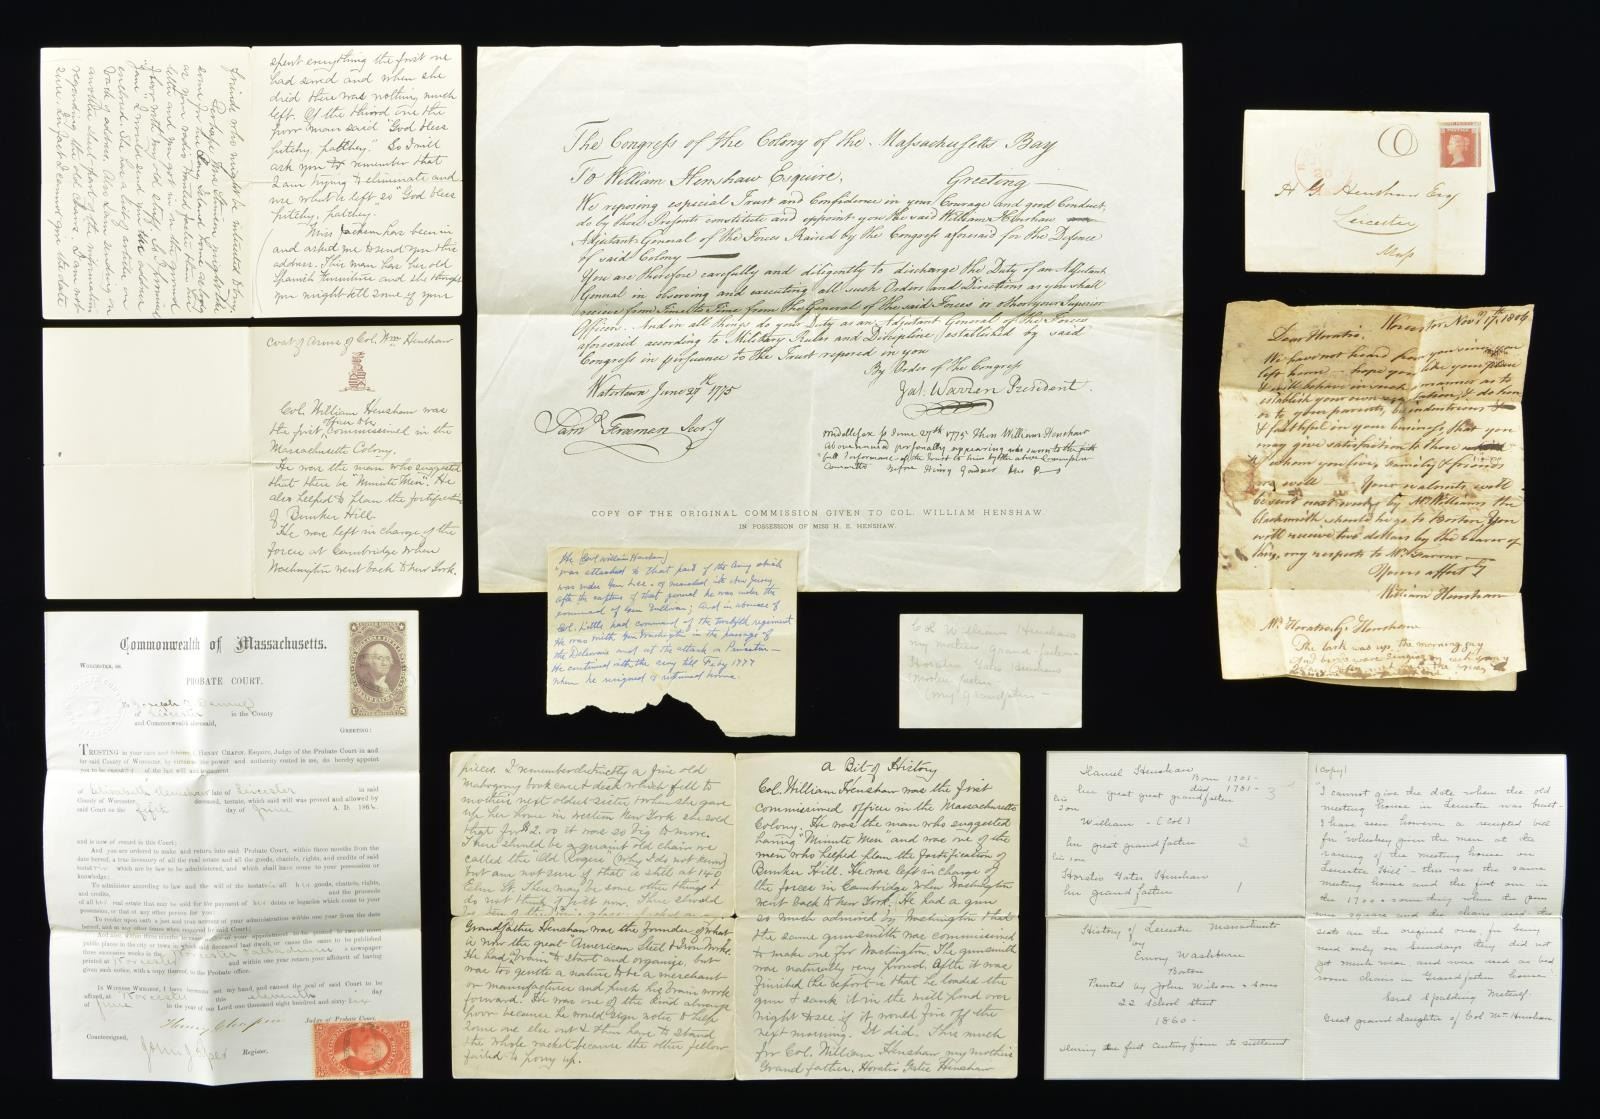 spent everything the first one
had saved and when she
died there was nothing much
left. Of the third one the
poor man said "God bless
pitchy, patchey." So I will
ask you to remember that
I am trying to eliminate and
use what is left so "God bless
pitchy, patchey."
Miss Jackson has been in
and asked me to send you this
address. This man has her old
Spanish furniture and she thought
you might sell some of your
friends who might be interested to buy.
Perhaps Mrs. Stanton might like
some for her Long Island home
"Jane" I would send you the address
enclosed. She has a list
another sheet part of the information
regarding the old chairs. I am not
sure. In fact I cannot give the date
Coat of Arms of Col. Wm Henshaw
Col. William Henshaw was
the first officer commissioned in the
Massachusetts Colony.
He was the man who suggested
that there be "Minute Men". He
also helped to plan the fortification
of Bunker Hill.
He was left in charge of the
forces at Cambridge when
Washington went back to New York.
The Congress of the Colony of the Massachusetts Bay
To William Henshaw Esquire. Greeting
We reposing especial Trust and Confidence in your Courage and good Conduct
do by these Presents constitute and appoint you the said William Henshaw
Adjutant General of the Forces Raised by the Congress aforesaid for the Defence
of said Colony
You are therefore carefully and diligently to discharge the Duty of an Adjutant
General in observing and executing all such Orders and Directions as you shall
receive from Time to Time from the General of the said Forces or other your Superior
Officers. And in all things do your Duty as an Adjutant General of the Forces
aforesaid according to Military Rules and Discipline established by said
Congress in persuance to the Trust reposed in you
By Order of the Congress
Watertown June 27th 1775 Jas. Warren President.
Saml Freeman Secry
Middlesex ss June 27th 1775 Then William Henshaw
above named personally appearing was sworn to the faithfull
Performance of the Trust to him by the above Commission
Committed before Henry Gardner Jus P
COPY OF THE ORIGINAL COMMISSION GIVEN TO COL. WILLIAM HENSHAW.
IN POSSESSION OF MISS H. E. HENSHAW.
POSTAGE
H G Henshaw Esq
Leicester
Mass
Worcester Novr 17th 1806
Dear Horatio.
We have not heard from you since you
left home — hope you like your place
& will behave in such manner as to
establish your own reputation, & do honor
to your parents, be industrious &
faithful in your business, that you
may give satisfaction to those
whom you live, Family & friends
are well — Your walnuts will
be sent next week by Mr Williams the
blacksmith should he go to Boston. You
will receive two dollars by the bearer of
this, my respects to Mr
Yours affectly
William Henshaw
Mr Horatio G. Henshaw
The lark was up the morning gray
He (Col. William Henshaw)
"was attached to that part of the Army which
was under Gen Lee. & marched into New Jersey,
after the capture of that general he was under the
command of Gen Sullivan; And in absence of
Col. Little had command of the twelfth regiment
He was with Gen Washington in the passage of
the Delaware and at the attack on Princeton—
He continued with the army till Feby 1777
when he resigned & returned home.
Col William Henshaw
my mothers grand-father
Horatio Gates Henshaw
mother father
(my) Grandfather—
Commonwealth of Massachusetts.
WORCESTER, SS.
PROBATE COURT.
To Joseph A Denny
of Leicester in the County
and Commonwealth aforesaid,
GREETING:
TRUSTING in your care and fidelity, I, HENRY CHAPIN, Esquire, Judge of the Probate Court in and
for said County of Worcester, by virtue of the power and authority vested in me, do hereby appoint
you to be executor of the last will and testament
of Elizabeth Henshaw late of Leicester in said
County of Worcester, deceased, testate, which said will was proved and allowed by
said Court on the fifth day of June A. D. 1866.
and is now of record in this Court;
And you are ordered to make and return into said Probate Court, within three months from the
date hereof, a true inventory of all the real estate and all the goods, chattels, rights, and credits of said
testatrix which are by law to be administered, and which shall have come to your possession or
knowledge;
To administer according to law and the will of the testatrix all her goods, chattels, rights,
and credits, and the proceeds
of all her real estate that may be sold for the payment of her debts or legacies which come to your
possession, or that of any other person for you;
To render upon oath a just and true account of your administration within one year from the date
hereof, and at any other times when required by said Court;
And also, within three months, to cause notice of your appointment to be posted in two or more
public places in the city or town in which said deceased last dwelt, or cause the same to be published
three successive weeks in the newspaper
printed at Worcester and within one year return your affidavit of having
given such notice, with a copy thereof, to the Probate office.
IN WITNESS WHEREOF, I have hereunto set my hand, and caused the seal of said Court to be
affixed, at Worcester this eleventh day
of June in the year of our Lord one thousand eight hundred and sixty six
Henry Chapin Judge of Probate Court.
Countersigned,
Register.
pieces. I remember distinctly a fine old
mahogany book case & desk which fell to
mothers next oldest sister & when she gave
up her home in western New York she sold
that for $2.00 it was so big to move.
There should be a quaint old chair we
called the "Old Rogers" (why I do not know)
but am not sure if that is still at 140
Elm St. There may be some other things I
do not think of just now. There should
Grandfather Henshaw was the founder of what
is now the great American Steel & Iron Works.
He had brain to start and organize, but
was too gentle a nature to be a merchant
or manufacturer and push his brain work
forward. He was one of the kind always
poor because he would sign notes to help
some one else out & then have to stand
the whole racket because the other fellow
failed to pony up.
A Bit of History
Col. William Henshaw was the first
commissioned officer in the Massachusetts
Colony. He was the man who suggested
having "Minute Men" and was one of the
men who helped plan the fortification of
Bunker Hill. He was left in charge of
the forces in Cambridge when Washington
went back to New York. He had a gun
so much admired by Washington & had
the same gunsmith was commissioned
to make one for Washington. The gunsmith
was naturally very proud. After it was
finished the report is that he loaded the
gun & sunk it in the mill pond over
night to see if it would fire off the
next morning. It did. This much
for Col. William Henshaw my mothers
Grand father, Horatio Gates Henshaw
Daniel Henshaw
Born 1701-
died 1781- 3
her great great grandfather
his son
William - (Col)
her great grandfather 2
his son
Horatio Gates Henshaw
her grandfather 1
History of Leicester Massachusetts
by
Emory Washburn
Boston
Printed by John Wilson & sons
22 School street
1860-
during the first century from its settlement
(Copy)
"I cannot give the date when the old
meeting house in Leicester was built-
I have seen however a receipted bill
for "whiskey given the men at the
raising of the meeting house on
Leicester Hill" - this was the same
meeting house and the first one in
the 1700s some time, when the pews
were square and the chairs used. the
seats are the original ones, for being
used only on Sundays they did not
get much wear. and were used as bed
room chairs in Grandfathers house"
Sarah Spalding Metcalf.
Great grand daughter of Col Wm Henshaw